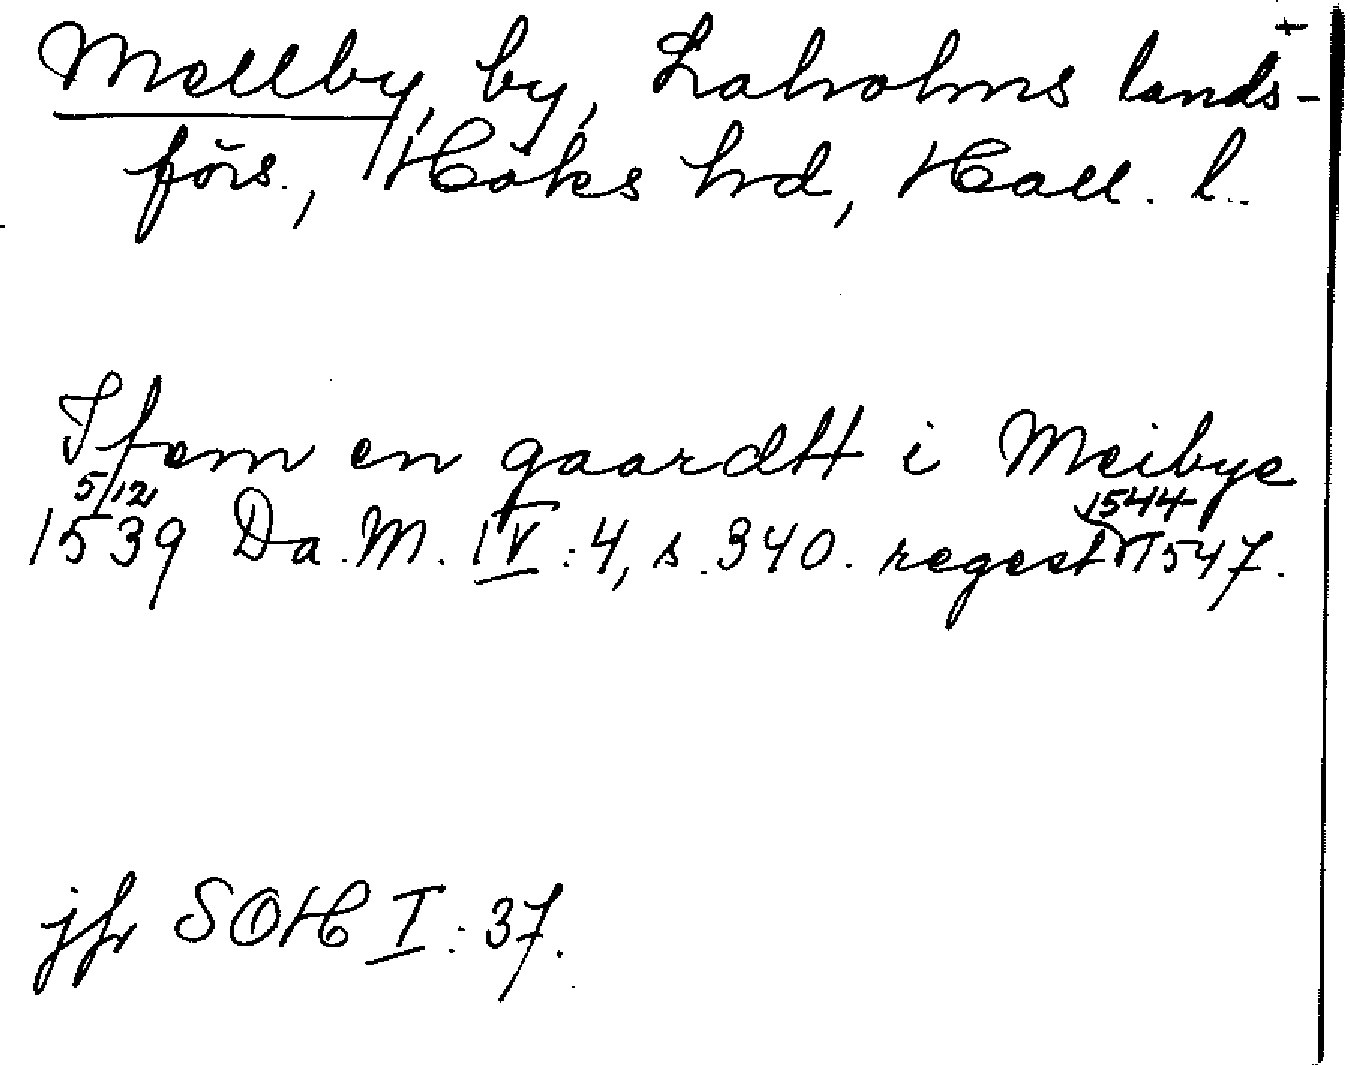 +
Mellby, by, Laholms lands-
förs., Höks hd, Hall. l.
Item en gaardtt i Meibye
5/12 1544
1539 Da. M. IV: 4, s. 340. regest 1547.
jfr SOH I: 37.